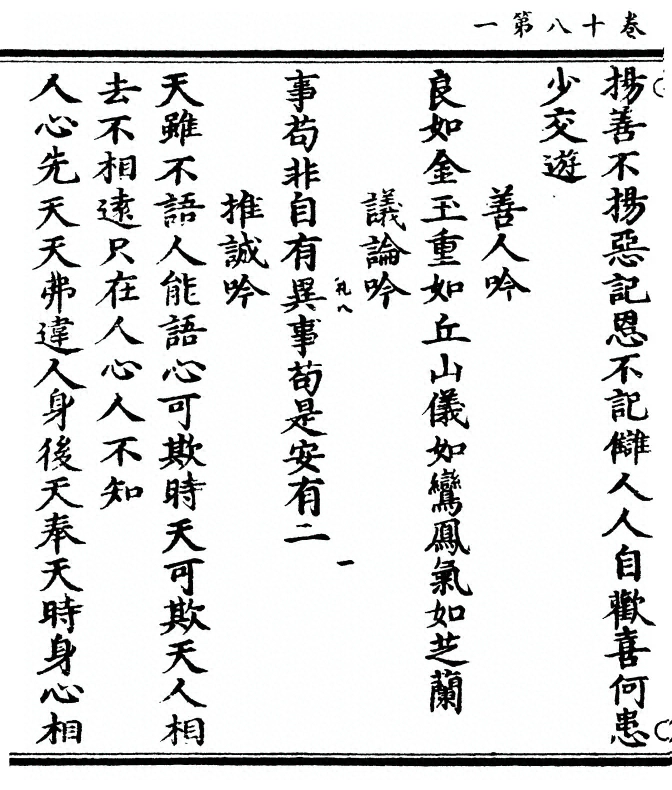 卷十八第一
揚善不揚惡記恩不記讎人人自歡喜何患
少交遊
善人吟
良如金玉重如丘山儀如鸞鳳氣如芝蘭
議論吟
事苟非自有異事苟是安有二
一
推誠吟
天雖不語人能語心可欺時天可欺天人相
去不相遠只在人心人不知
人心先天天弗違人身後天奉天時身心相